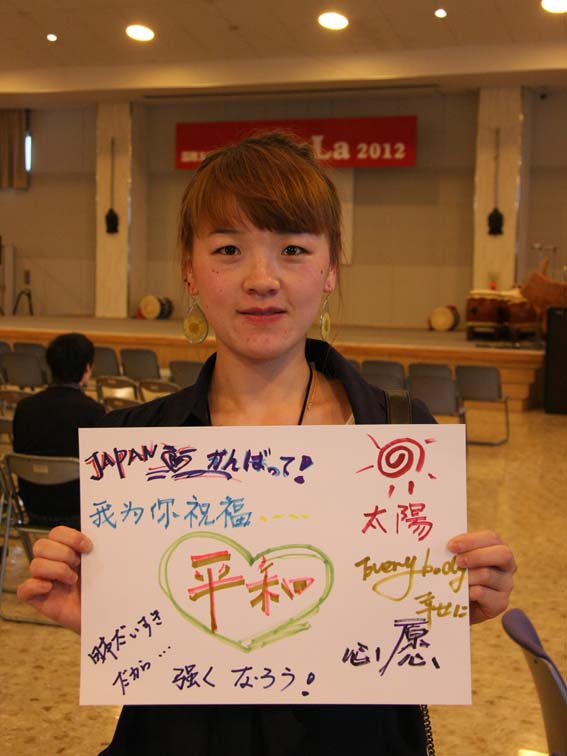 La 2012
JAPAN がんばって!
我为你祝福....
太陽
平和
Everybody
幸せに
心愿
だいすき
だから...
強くなろう!